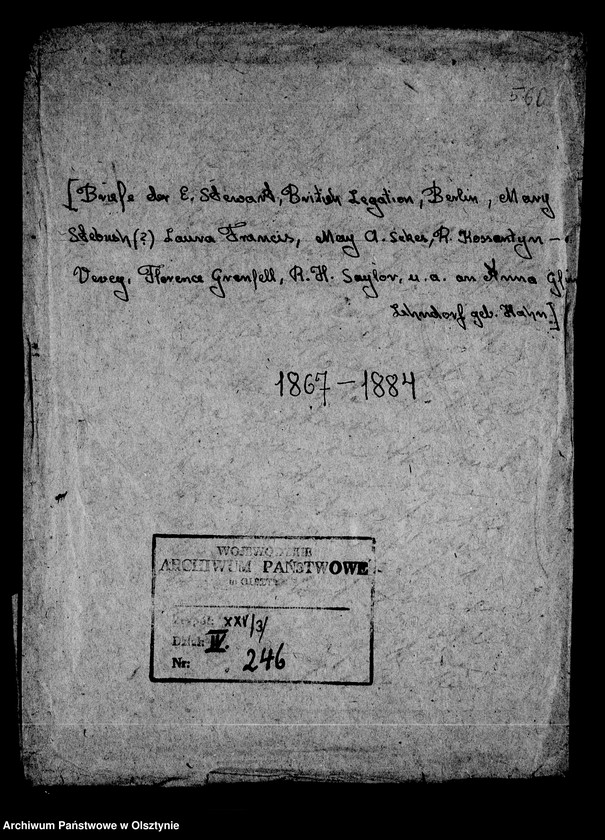 560
[Briefe der E. Stewart, British Legation, Berlin, Mary
Stebush(?) Laura Francis, May A. Seker, R. Kossantyn –
Vevey, Florence Grenfell, R. H. Saylor, u. a. an Anna
Lehndorf geb. Hahn]
1867 – 1884
WOJEWÓDZKIE
ARCHIWUM PAŃSTWOWE
w OLSZTYNIE
Zespół: XXV/3/
Dział: IV.
Nr: 246
Archiwum Państwowe w Olsztynie